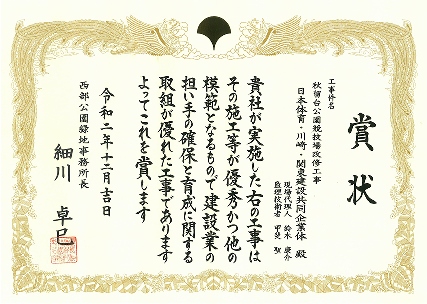 賞状
工事件名
秋留台公園競技場改修工事
日本体育・川崎・関東建設共同企業体 殿
現場代理人 鈴木 慶介
監理技術者 甲斐 聖
貴社が実施した右の工事は
その施工等が優秀かつ他の
模範となるもので建設業の
担い手の確保と育成に関する
取組が優れた工事であります
よってこれを賞します
令和二年十二月吉日
西部公園緑地事務所長
細川 卓巳